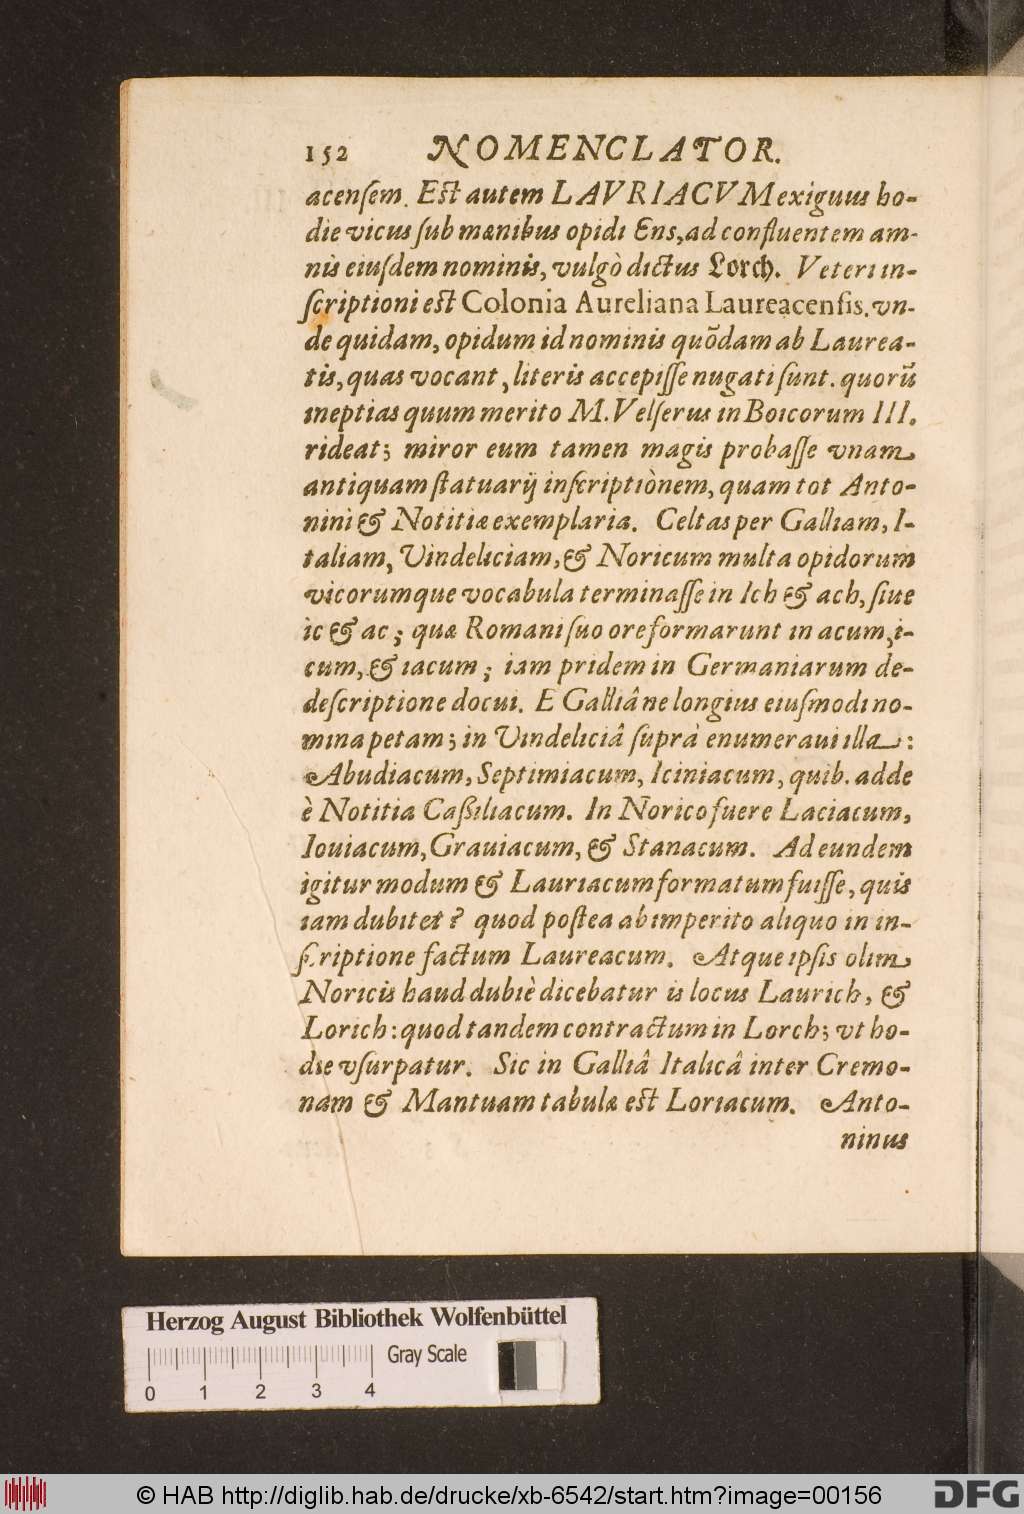 152 NOMENCLATOR.
acenſem. Eſt autem LAVRIACVM exiguus ho-
die vicus ſub mænibus opidi Ens, ad confluentem am-
nis eiuſdem nominis, vulgò dictus Lorch. Veteri in-
ſcriptioni eſt Colonia Aureliana Laureacenſis. vn-
de quidam, opidum id nominis quōdam ab Laurea-
tis, quas vocant, literis accepiſſe nugati ſunt. quorū
ineptias quum merito M. Velſerus in Boicorum III.
rideat; miror eum tamen magis probaſſe vnam
antiquam ſtatuarij inſcriptiònem, quam tot Anto-
nini & Notitiæ exemplaria. Celtas per Galliam, I-
taliam, Vindeliciam, & Noricum multa opidorum
vicorumque vocabula terminaſſe in Ich & ach, ſiue
ic & ac; quæ Romani ſuo ore formarunt in acum, i-
cum, & iacum; iam pridem in Germaniarum de-
deſcriptione docui. E Galliâ ne longius eiuſmodi no-
mina petam; in Vindeliciâ ſuprà enumeraui illa:
Abudiacum, Septimiacum, Iciniacum, quib. adde
è Notitia Caßiliacum. In Norico fuere Laciacum,
Iouiacum, Grauiacum, & Stanacum. Ad eundem
igitur modum & Lauriacum formatum fuiſſe, quis
iam dubitet? quod poſtea ab imperito aliquo in in-
ſcriptione factum Laureacum. Atque ipſis olim
Noricis haud dubiè dicebatur is locus Laurich, &
Lorich: quod tandem contractum in Lorch; vt ho-
die vſurpatur. Sic in Galliâ Italicâ inter Cremo-
nam & Mantuam tabulæ eſt Loriacum. Anto-
ninus
Herzog August Bibliothek Wolfenbüttel
Gray Scale
0 1 2 3 4
© HAB http://diglib.hab.de/drucke/xb-6542/start.htm?image=00156
DFG